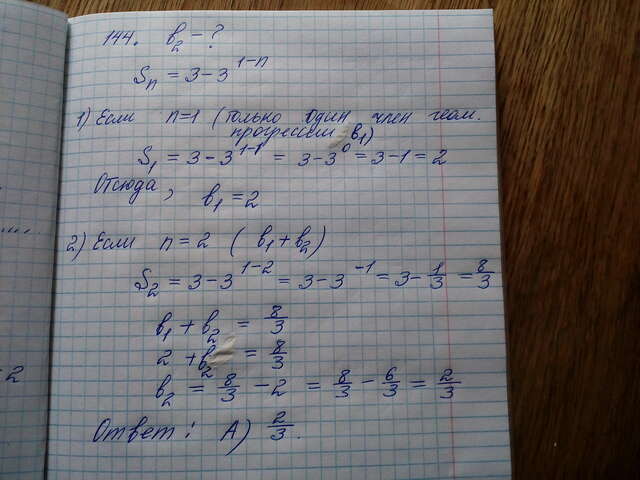 144. b₂ - ?
Sₙ = 3 - 3^(1-n)
1) Если n=1 (только один член геом.
прогрессии b₁)
S₁ = 3 - 3^(1-1) = 3 - 3^0 = 3 - 1 = 2
Отсюда, b₁ = 2
2) Если n = 2 (b₁ + b₂)
S₂ = 3 - 3^(1-2) = 3 - 3^(-1) = 3 - 1/3 = 8/3
b₁ + b₂ = 8/3
2 + b₂ = 8/3
b₂ = 8/3 - 2 = 8/3 - 6/3 = 2/3
Ответ: А) 2/3.
2